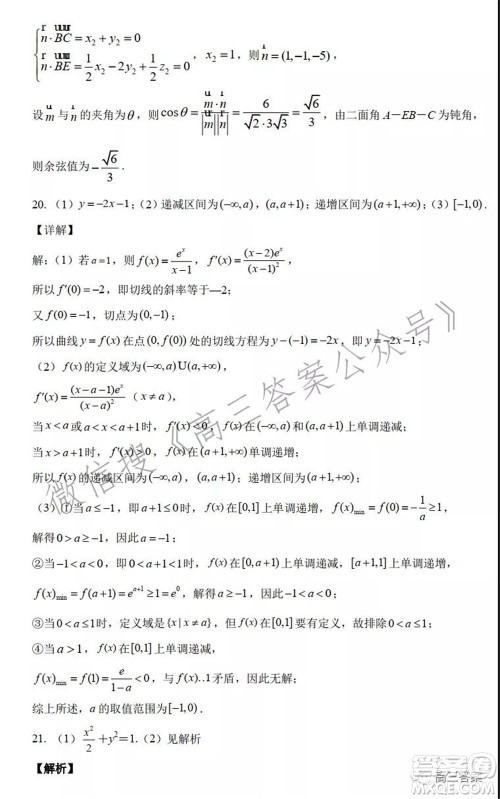 n·BC = x₂ + y₂ = 0
n·BE = 1/2 x₂ − 2y₂ + 1/2 z₂ = 0 ，x₂ = 1，则 n = (1,−1,−5)，
设 m 与 n 的夹角为θ，则 cosθ = m·n / |m||n| = 6 / √2·3√3 = √6/3，由二面角 A－EB－C 为钝角，
则余弦值为 −√6/3．
20.（1）y=−2x−1；（2）递减区间为(−∞,a)，(a,a+1)；递增区间为(a+1,+∞)；（3）[−1,0)．
【详解】
解：（1）若 a=1，则 f(x) = eˣ/(x−1)，f′(x) = (x−2)eˣ/(x−1)²，
所以 f′(0)=−2，即切线的斜率等于—2；
又 f(0)=−1，切点为(0,−1)；
所以曲线 y=f(x) 在点(0,f(0))处的切线方程为 y−(−1)=−2x，即 y=−2x−1；
（2）f(x) 的定义域为(−∞,a)U(a,+∞)，
f′(x) = (x−a−1)eˣ/(x−a)²（x≠a），
当 x<a 或 a<x<a+1 时，f′(x)<0，f(x) 在(−∞,a)，(a,a+1)上单调递减；
当 x>a+1 时，f′(x)>0，f(x) 在(a+1,+∞)单调递增；
所以 f(x) 的递减区间为(−∞,a)，(a,a+1)；递增区间为(a+1,+∞)；
（3）①当 a≤−1，即 a+1≤0 时，f(x) 在[0,1]上单调递增，f(x)min = f(0) = −1/a ≥ 1，
解得 0>a≥−1，因此 a=−1；
②当−1<a<0，即 0<a+1<1 时，f(x) 在[0,a+1)上单调递减，[a+1,1]上单调递增，
f(x)min = f(a+1) = eᵃ⁺¹ ≥ 1 = e⁰，解得 a≥−1，因此−1<a<0；
③当 0<a≤1 时，定义域是{x|x≠a}，由于 f(x) 在[0,1]要有定义，故排除 0<a≤1；
④当 a>1，f(x) 在[0,1]上单调递减，
f(x)min = f(1) = e/(1−a) < 0，与 f(x)..1 矛盾，因此无解；
综上所述，a 的取值范围为[−1,0)．
21.（1）x²/2 +y²=1.（2）见解析
【解析】
微信搜《高三答案公众号》
高三答案